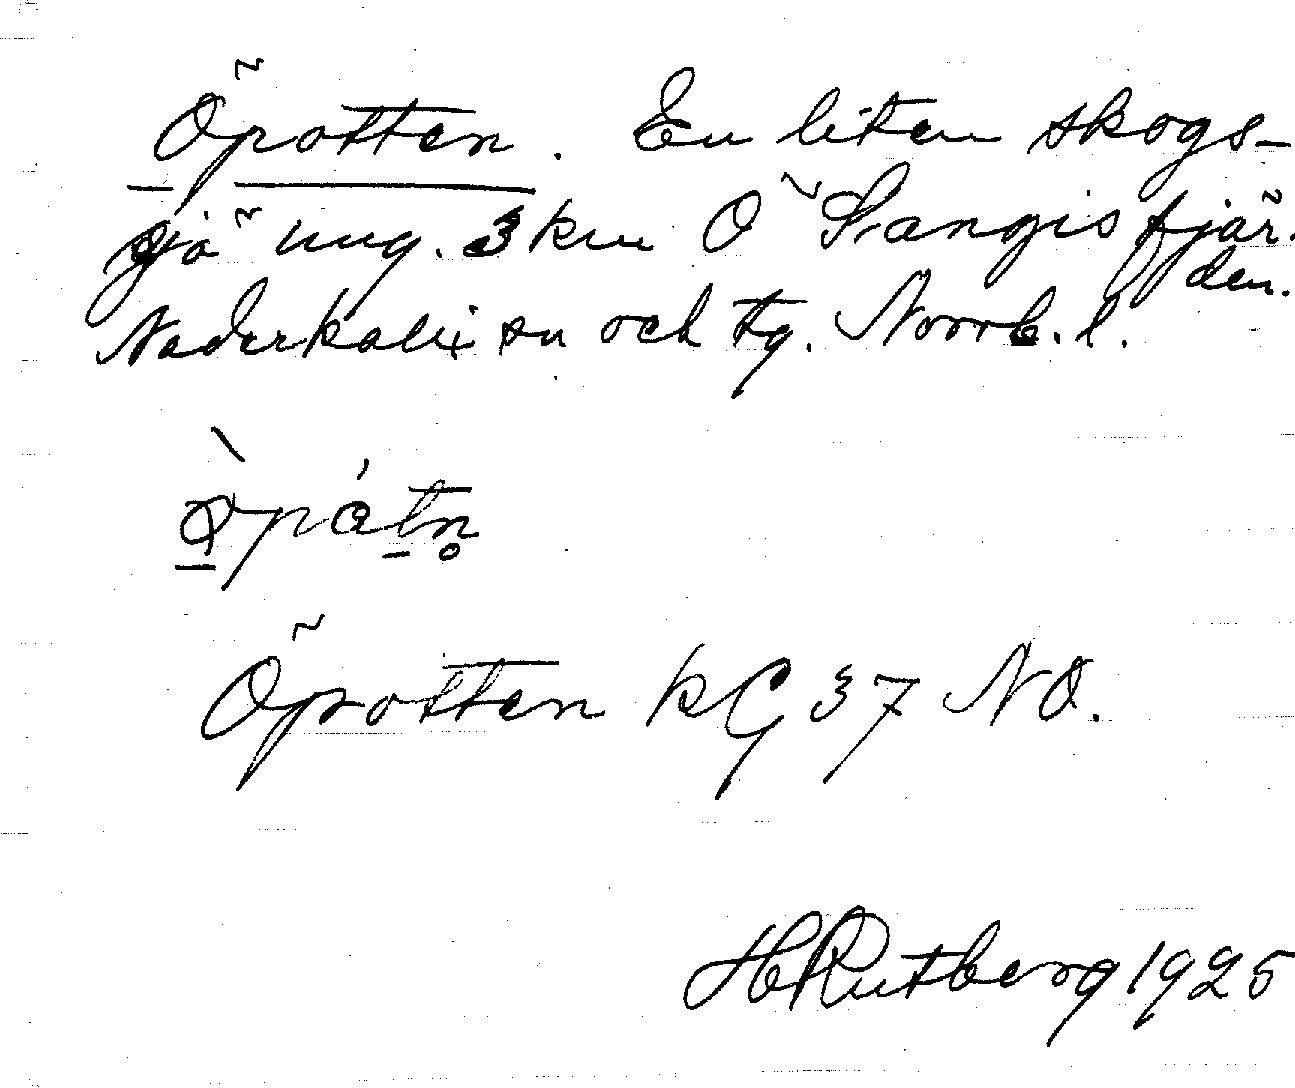 Öpotten. En liten skogs-
sjö ung. 3 km Ö Sangisfjär-
den.
Nederkalix sn och tg. Norrb. l.
Öpotten KG 37 NO.
H Rutberg 1925